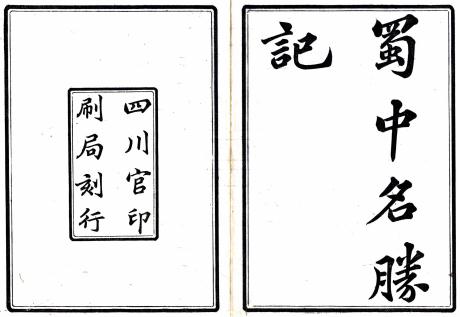 蜀中名勝
記
四川官印
刷局刻行